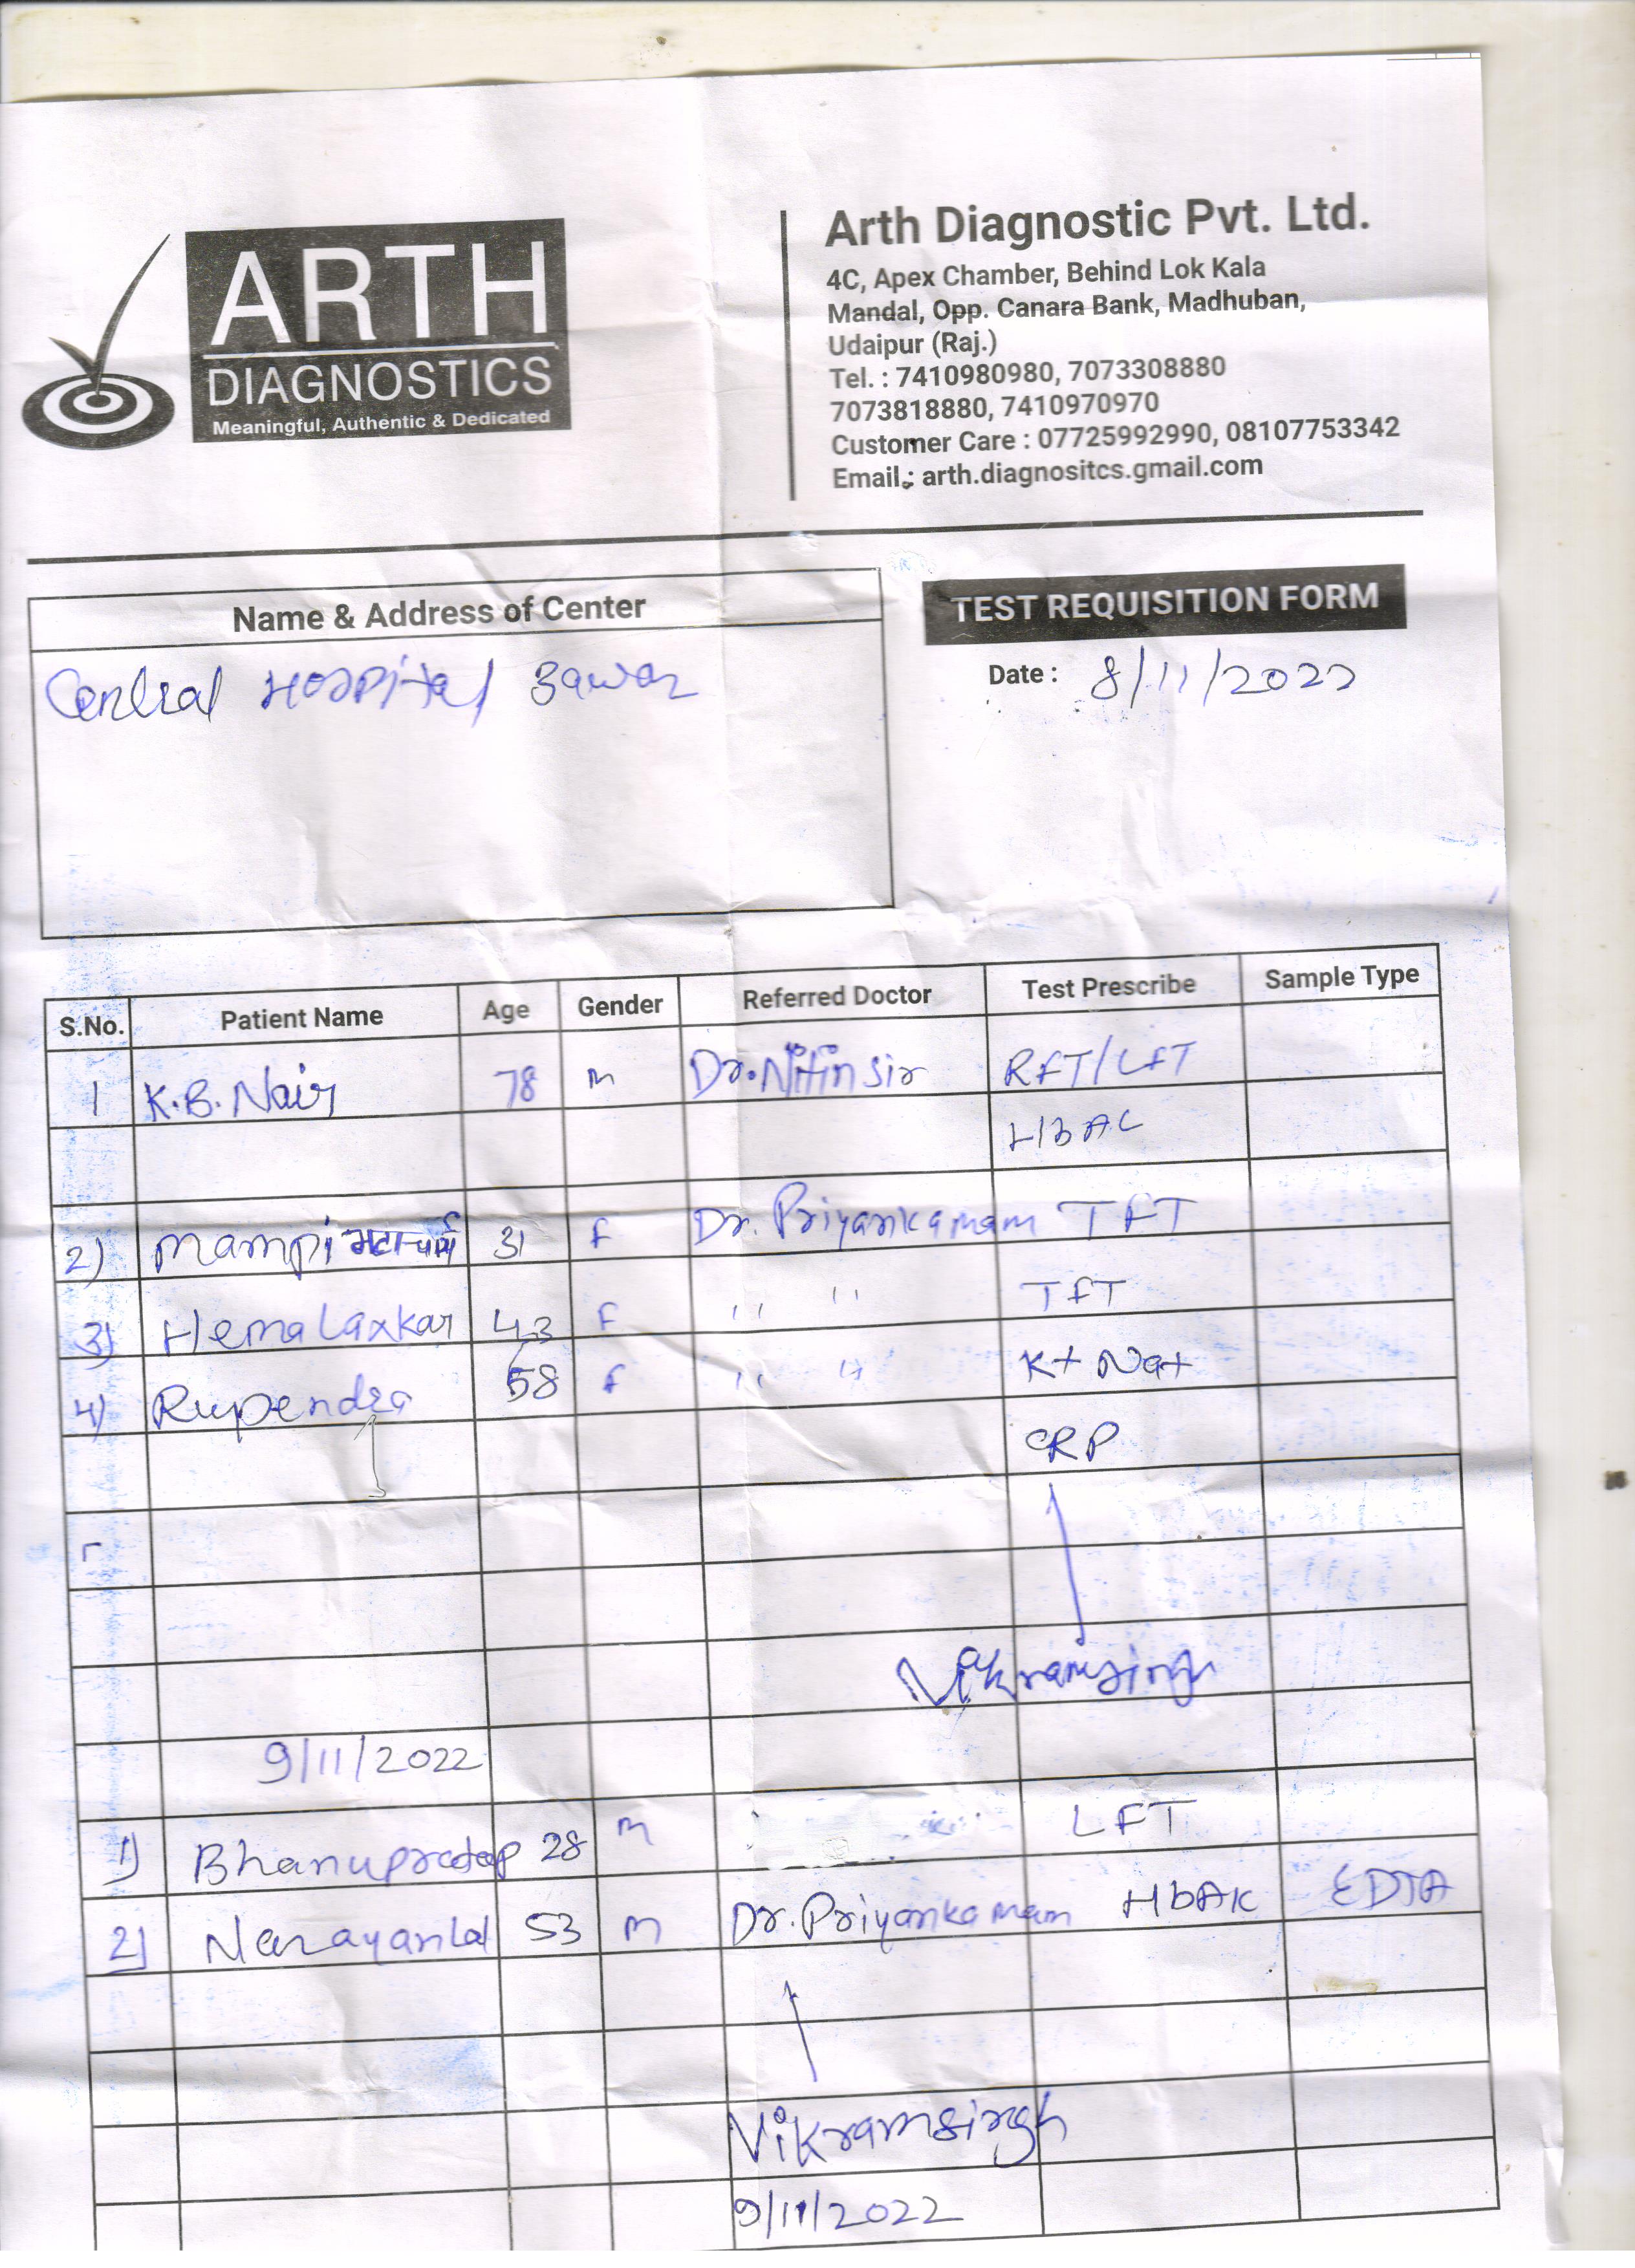 ARTH
DIAGNOSTICS
Meaningful, Authentic & Dedicated
Arth Diagnostic Pvt. Ltd.
4C, Apex Chamber, Behind Lok Kala
Mandal, Opp. Canara Bank, Madhuban,
Udaipur (Raj.)
Tel. : 7410980980, 7073308880
7073818880, 7410970970
Customer Care : 07725992990, 08107753342
Email : arth.diagnositcs.gmail.com
Name & Address of Center
Central Hospital Zawar
TEST REQUISITION FORM
Date : 8/11/2022
S.No. Patient Name Age Gender Referred Doctor Test Prescribe Sample Type
1 K.B. Nair 78 M Dr. Nitin Sir RFT/LFT
HbAC
2) Mampi 31 F Dr. Priyanka mam TFT
3) Hema Laxkar 43 F " " TFT
4) Rupendra 58 F " " K+ Na+
CRP
Vikramsingh
9/11/2022
1) Bhanupratap 28 M LFT
2) Narayanlal 53 M Dr. Priyanka mam HbA1c EDTA
Vikramsingh
9/11/2022